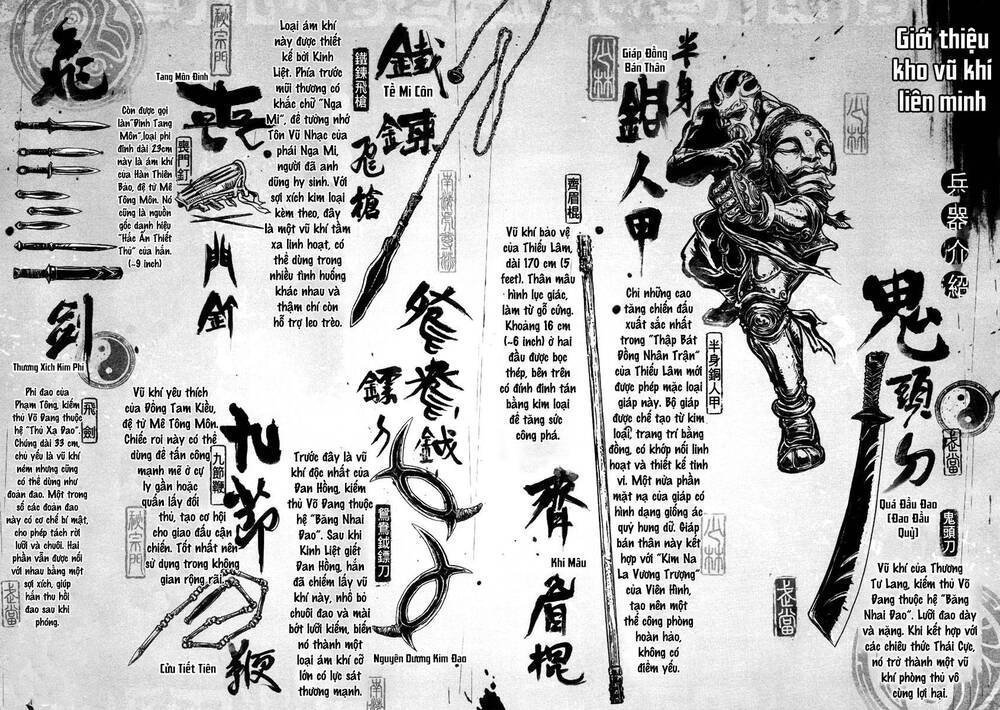 Giới thiệu
kho vũ khí
liên minh
兵器介紹
鬼頭刀
Quá Đầu Đao
(Đao Đầu
Quỷ)
鬼頭刀
武當
Vũ khí của Thương
Tư Lang, kiếm thủ Võ
Đang thuộc hệ "Băng
Nhai Đao". Lưỡi đao dày
và nặng. Khi kết hợp với
các chiêu thức Thái Cực,
nó trở thành một vũ
khí phòng thủ vô
cùng lợi hại.
少林
Giáp Đồng
Bán Thân
半身
銅人甲
半身銅人甲
Chỉ những cao
tăng chiến đấu
xuất sắc nhất
trong "Thập Bát
Đồng Nhân Trận"
của Thiếu Lâm mới
được phép mặc loại
giáp này. Bộ giáp
được chế tạo từ kim
loại, trang trí bằng
đồng, có khớp nối linh
hoạt và thiết kế tinh
vi. Một nửa phần
mặt nạ của giáp có
hình dạng giống ác
quỷ hung dữ. Giáp
bán thân này kết
hợp với "Kim Na
La Vương Trượng"
của Viên Hình,
tạo nên một
thế công phòng
hoàn hảo,
không có
điểm yếu.
齊眉棍
Vũ khí bảo vệ
của Thiếu Lâm,
dài 170 cm (5
feet). Thân mâu
hình lục giác,
làm từ gỗ cứng.
Khoảng 16 cm
(~6 inch) ở hai
đầu được bọc
thép, bên trên
có đính đinh tán
bằng kim loại
để tăng sức
công phá.
齊
Khi Mâu
眉棍
鐵鍊
Tề Mi Côn
飛槍
鐵鍊飛槍
Loại ám khí
này được thiết
kế bởi Kinh
Liệt. Phía trước
mũi thương có
khắc chữ "Nga
Mi", để tưởng nhớ
Tôn Vũ Nhạc của
phái Nga Mi,
người đã anh
dũng hy sinh. Với
sợi xích kim loại
kèm theo, đây
là một vũ khí tầm
xa linh hoạt, có
thể dùng trong
nhiều tình huống
khác nhau và
thậm chí còn
hỗ trợ leo trèo.
鴛鴦鉞
鏢刀
鴛鴦鉞鏢刀
Trước đây là vũ
khí độc nhất của
Đan Hồng, kiếm
thủ Võ Đang thuộc
hệ "Băng Nhai
Đao". Sau khi
Kinh Liệt giết
Đan Hồng, hắn
đã chiếm lấy vũ
khí này, nhổ bỏ
chuôi đao và mài
bớt lưỡi kiếm, biến
nó thành một
loại ám khí cỡ
lớn có lực sát
thương mạnh.
Nguyên Dương Kiết Đao
秘宗門
Tang Môn Đinh
喪
門釘
喪門釘
Còn được gọi
là "Đinh Tang
Môn", loại phi
đinh dài 23cm
này là ám khí
của Hàn Thiên
Báo, đệ tử Mê
Tông Môn. Nó
cũng là nguồn
gốc danh hiệu
"Hắc Ấn Thiết
Thủ" của hắn.
(~9 inch)
Vũ khí yêu thích
của Đồng Tam Kiều,
đệ tử Mê Tông Môn.
Chiếc roi này có thể
dùng để tấn công
mạnh mẽ ở cự
ly gần hoặc
quấn lấy đối
thủ, tạo cơ hội
cho giao đấu cận
chiến. Tốt nhất nên
sử dụng trong không
gian rộng rãi.
九節鞭
九節
鞭
Cửu Tiết Tiên
飛
劍
Thương Xích Kim Phi
飛劍
Phi đao của
Phạm Tông, kiếm
thủ Võ Đang thuộc
hệ "Thủ Xạ Đao".
Chúng dài 33 cm,
chủ yếu là vũ khí
ném nhưng cũng
có thể dùng như
đoản đao. Một trong
số các đoản đao
này có cơ chế bí mật,
cho phép tách rời
lưỡi và chuôi. Hai
phần vẫn được nối
với nhau bằng một
sợi xích, giúp
hắn thu hồi
đao sau khi
phóng.
武當